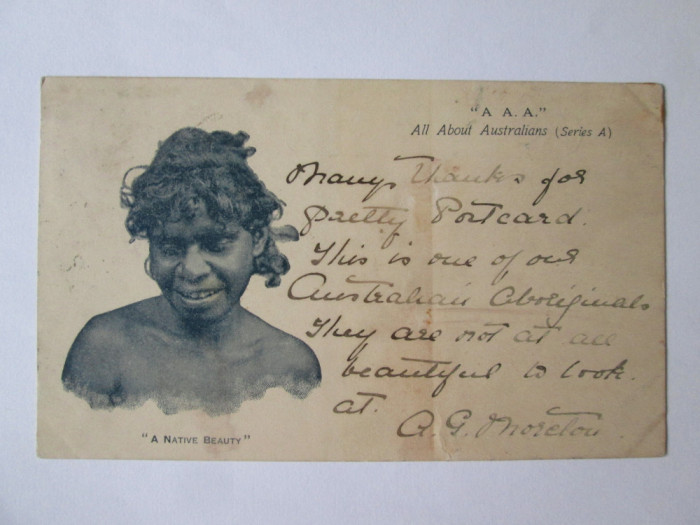 "A A. A."
All About Australians (Series A)
Many Thanks for
pretty Postcard.
This is one of our
Australian Aboriginals
They are not at all
beautiful to look.
at.
A. G. Moreton.
"A NATIVE BEAUTY"